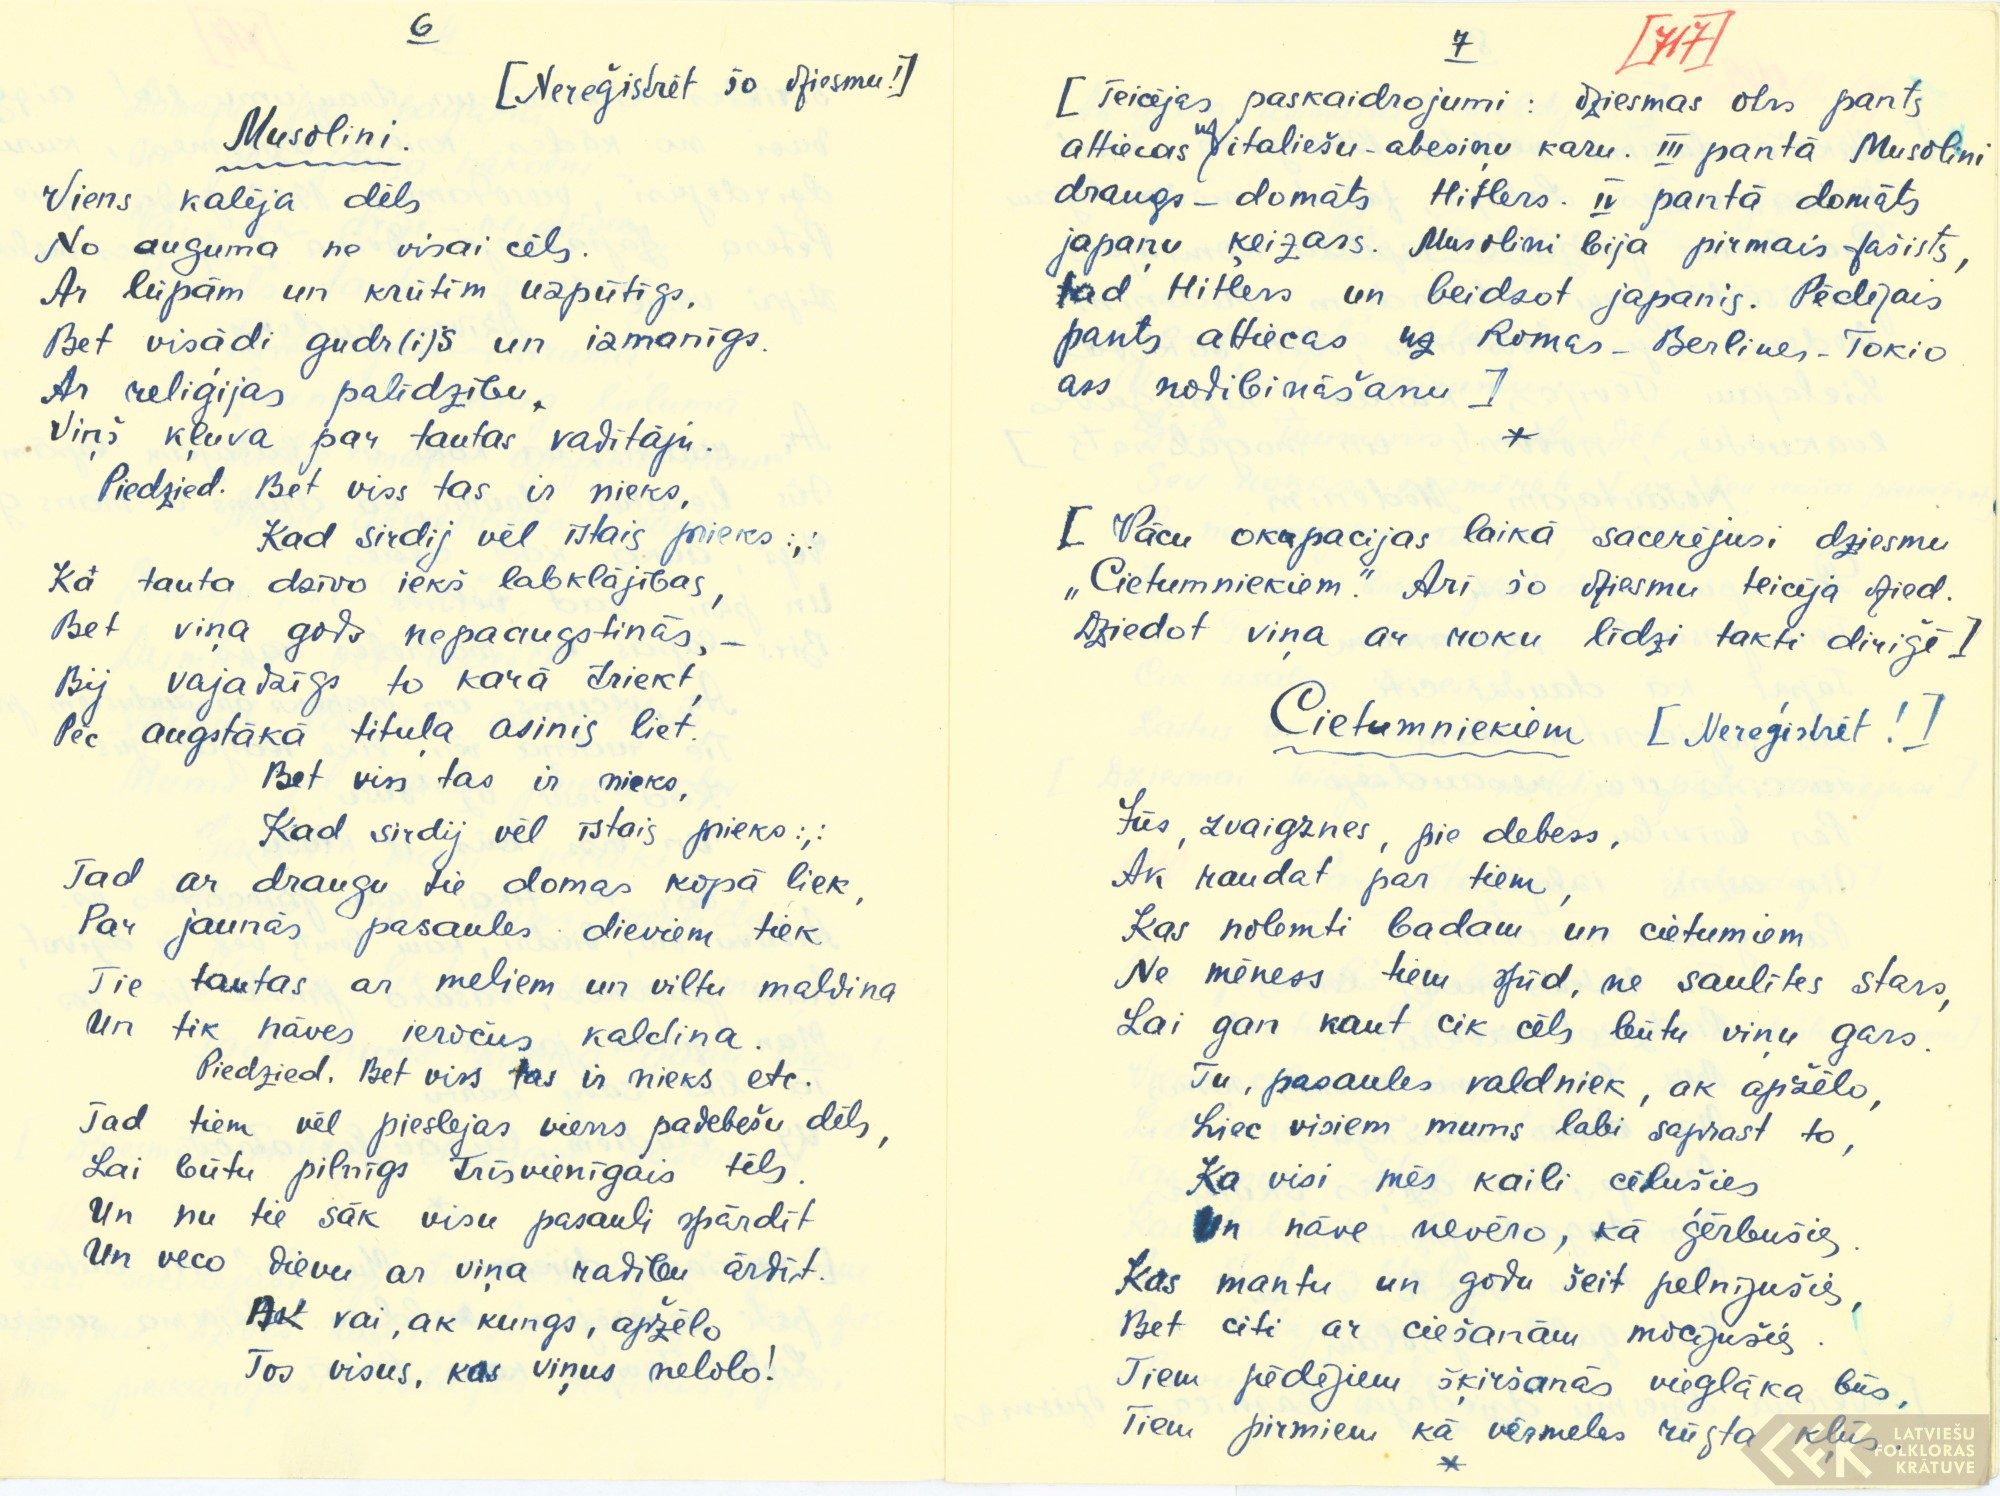 6
[Nereģistrēt šo dziesmu!]
Musolini.
Viens kalēja dēls
No auguma ne visai cēls.
Ar lūpām un krūtīm uzpūtīgs,
Bet visādi gudr(i)š un izmanīgs.
Ar reliģijas palīdzību,
Viņš kļuva par tautas vadītāju.
Piedzied. Bet viss tas ir nieks,
Kad sirdij vēl īstais prieks :,:
Kā tauta dzīvo iekš labklājības,
Bet viņa gods nepaaugstinās, –
Bij vajadzīgs to karā triekt,
Pēc augstākā tituļa asinis liet.
Bet viss tas ir nieks,
Kad sirdij vēl īstais prieks :,:
Tad ar draugu tie domas kopā liek,
Par jaunās pasaules dieviem tiek
Tie tautas ar meliem un viltu maldina
Un tik nāves ieročus kaldina.
Piedzied. Bet viss tas ir nieks etc.
Tad tiem vēl pieslejas viens padebešu dēls,
Lai būtu pilnīgs Trīsvienīgais tēls.
Un nu tie sāk visu pasauli spārdīt
Un veco dievu ar viņa radību ārdīt.
Ak vai, ak kungs, apžēlo
Tos visus, kas viņus nelolo!
7
[717]
[Teicējas paskaidrojumi: dziesmas otrs pants
attiecas uz italiešu-abesiņu karu. III pantā Musolini
draugs – domāts Hitlers. IV pantā domāts
japāņu ķeizars. Musolini bija pirmais fašists,
tad Hitlers un beidzot japānis. Pēdējais
pants attiecas uz Romas – Berlines – Tokio
ass nodibināšanu]
*
[Vācu okupacijas laikā sacerējusi dziesmu
„Cietumniekiem". Arī šo dziesmu teicēja dzied.
Dziedot viņa ar roku līdzi takti diriģē]
Cietumniekiem [Nereģistrēt!]
Jūs, zvaigznes, pie debess,
Ak raudat par tiem,
Kas nolemti badam un cietumiem
Ne mēness tiem spīd, ne saulītes stars,
Lai gan kaut cik cēls būtu viņu gars.
Tu, pasaules valdniek, ak apžēlo,
Liec visiem mums labi saprast to,
Ka visi mēs kaili cēlušies
Un nāve nevēro, kā ģērbušies.
Kas mantu un godu šeit pelnījušies,
Bet citi ar ciešanām mocījušies.
Tiem pēdējiem šķiršanās vieglāka būs,
Tiem pirmiem kā vērmeles rūgta kļūs.
*
LATVIEŠU
FOLKLORAS
KRĀTUVE